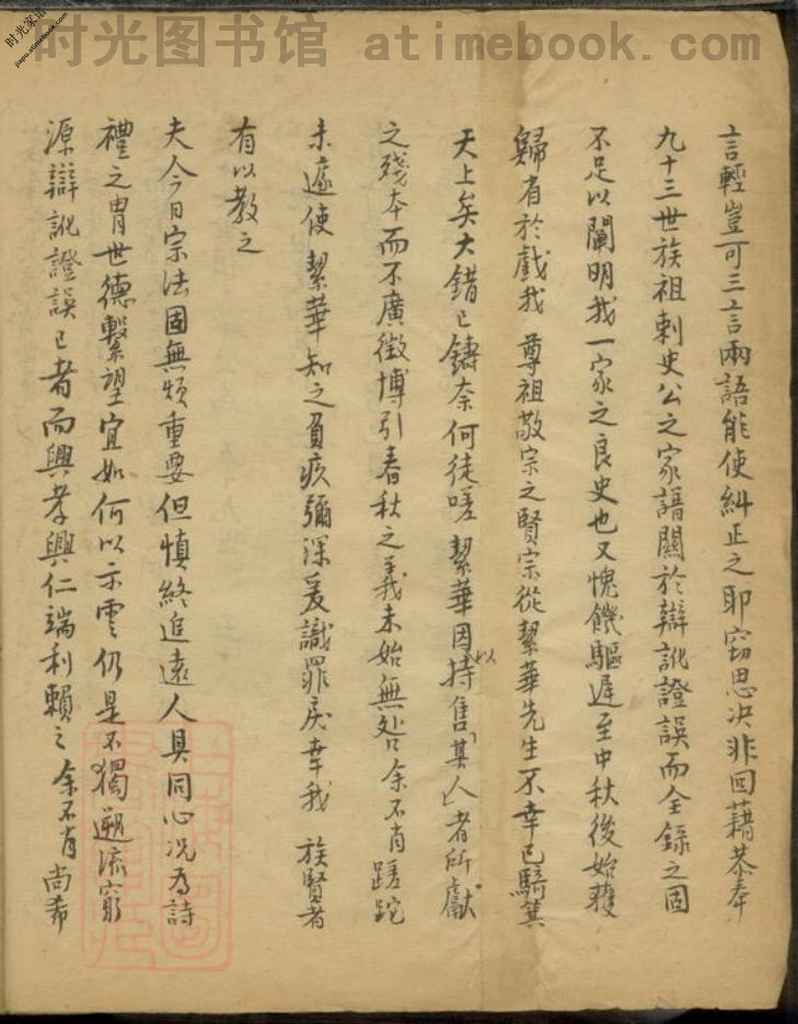 时光图书馆 atimebook.com
时光家谱
jiapu.atimebook.com
言輕豈可三言兩語能使糾正之耶窃思决非回藉恭奉
九十三世族祖刺史公之家譜關於辯訛證誤而全錄之固
不足以闡明我一家之良史也又愧饑驅遲至中秋後始穫
歸省於戲我 尊祖敬宗之賢宗從絜華先生不幸已騎箕
天上矣大錯已鑄奈何徒嗟 絜華因持以售「其人」者所獻
之殘本而不廣徵博引春秋之義未始無咎余不肖蹉跎
未遑使 絜華知之負疚彌深爰識罪戾幸我 族賢者
有以教之
夫今日宗法固無煩重要但慎終追遠人具同心况為詩
禮之胄世德繫望宜如何以示雲仍是不獨遡流窮
源辯訛證誤已者而興孝興仁端利賴之 余不肖尚希